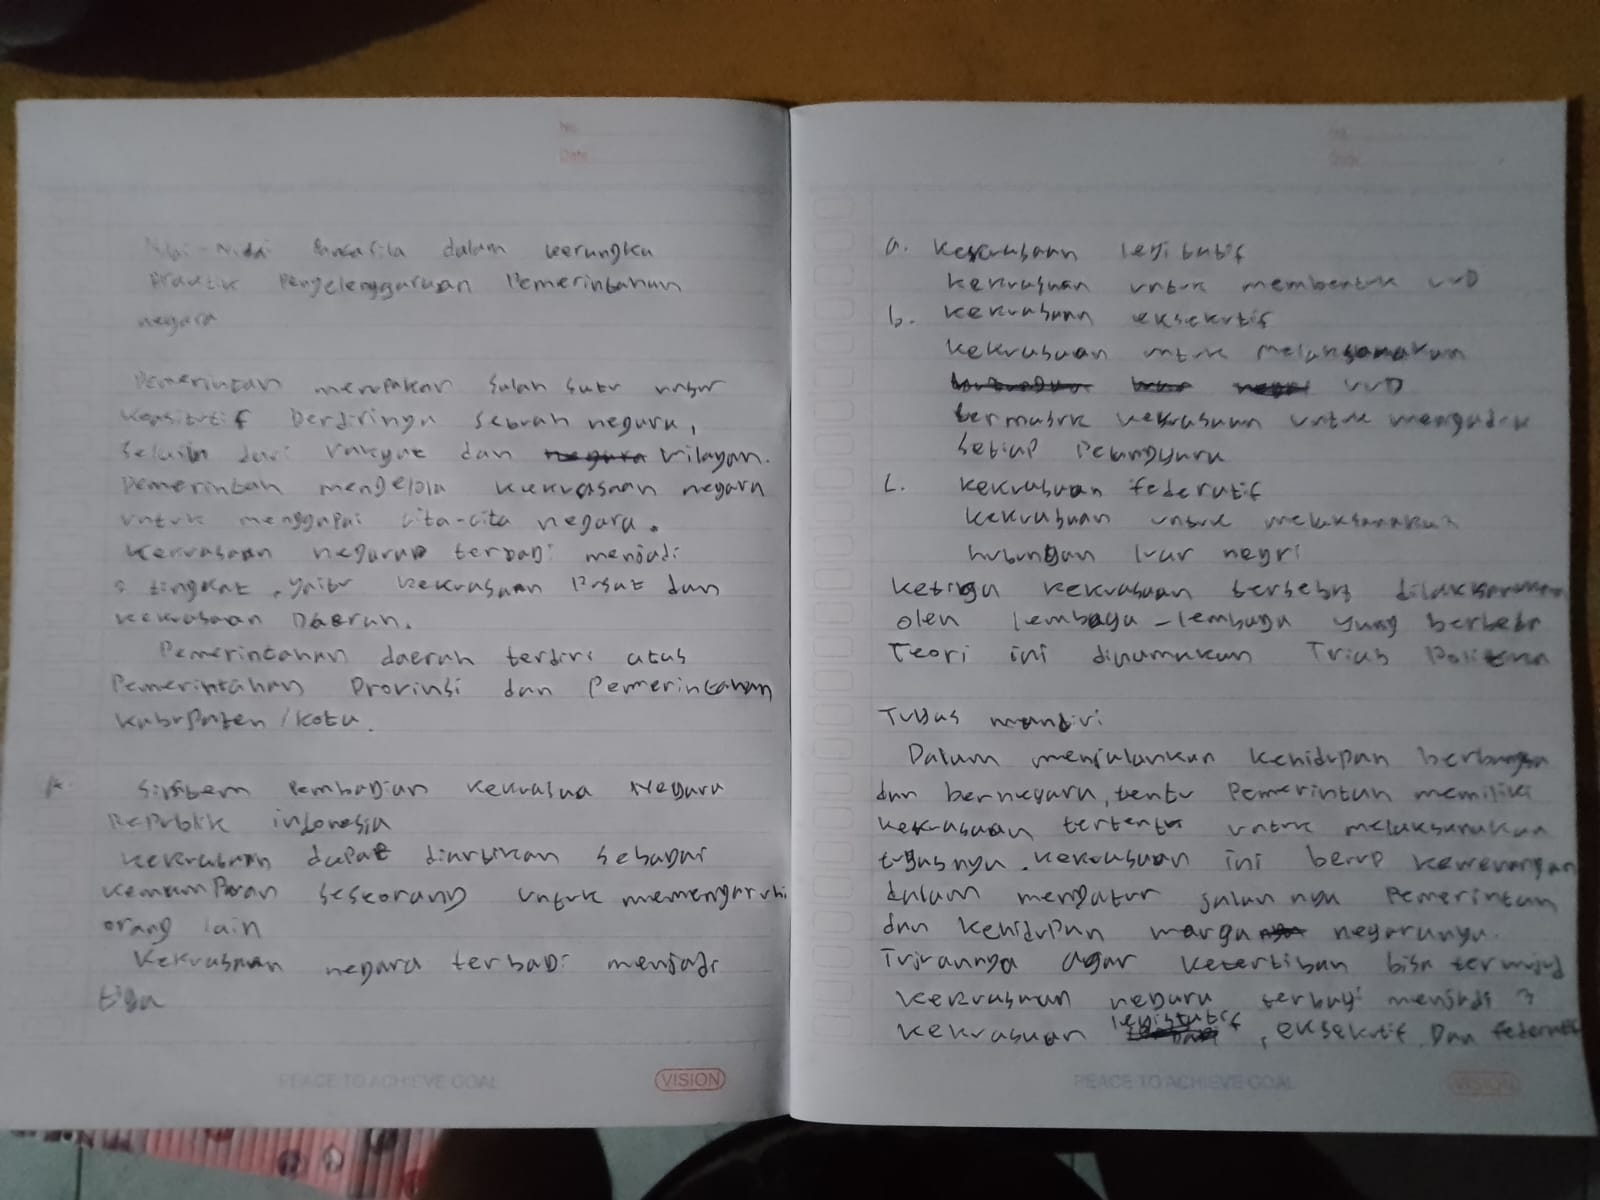 No
Date
Nilai-Nilai Pancasila dalam kerungku
Praktik Penyelenggaruan Pemerintahun
negara
Pemerintah merupakan salah satu unsur
Konstitutif berdiringa sebuah negara,
Selain dari rakyat dan wilayah.
Pemerintah mengelola kekuasaan negara
untuk menggapai cita-cita negara.
Kekuasaan negara terbagi menjadi
tingkat, yaitu kekuasaan Pusat dan
kekuasaan Daerah.
Pemerintahan daerah terdiri atas
Pemerintahan Provinsi dan Pemerintahan
kabupaten/kota.
A. Sistem Pembagian kekuasaa Negara
Republik indonesia
kekuasaan dapat diartikan sebagai
kemampuan seseorang untuk memengaruhi
orang lain
Kekuasaan negara terbagi menjadi
tiga
PEACE TO ACHIEVE GOAL
VISION
a. kekuasaan legislatif
kekuasaan untuk membentuk UUD
b. kekuasaan eksekutif
kekuasaan untuk melaksanakan
UUD
termasuk kekuasaan untuk mengadili
setiap Pelanggara
c. kekuasaan federatif
kekuasaan untuk melaksanakan
hubungan luar negri
ketiga kekuasaan tersebut dilaksanakan
oleh lembaga-lembaga yang berbeda
Teori ini dinamakan Trias Politika
Tugas mandiri
Dalam menjalankan kehidupan berbangsa
dan bernegara, tentu Pemerintah memiliki
kekuasaan tertentu untuk melaksanakan
tugasnya. kekuasaan ini berup kewenangan
dalam mengatur jalannya Pemerintah
dan kehidupan warga negaranya.
Tujuannya agar ketertiban bisa terwujud
kekuasaan negara terbagi menjadi 3
kekuasaan legislatif, eksekutif Dan federatif
PEACE TO ACHIEVE GOAL
VISION